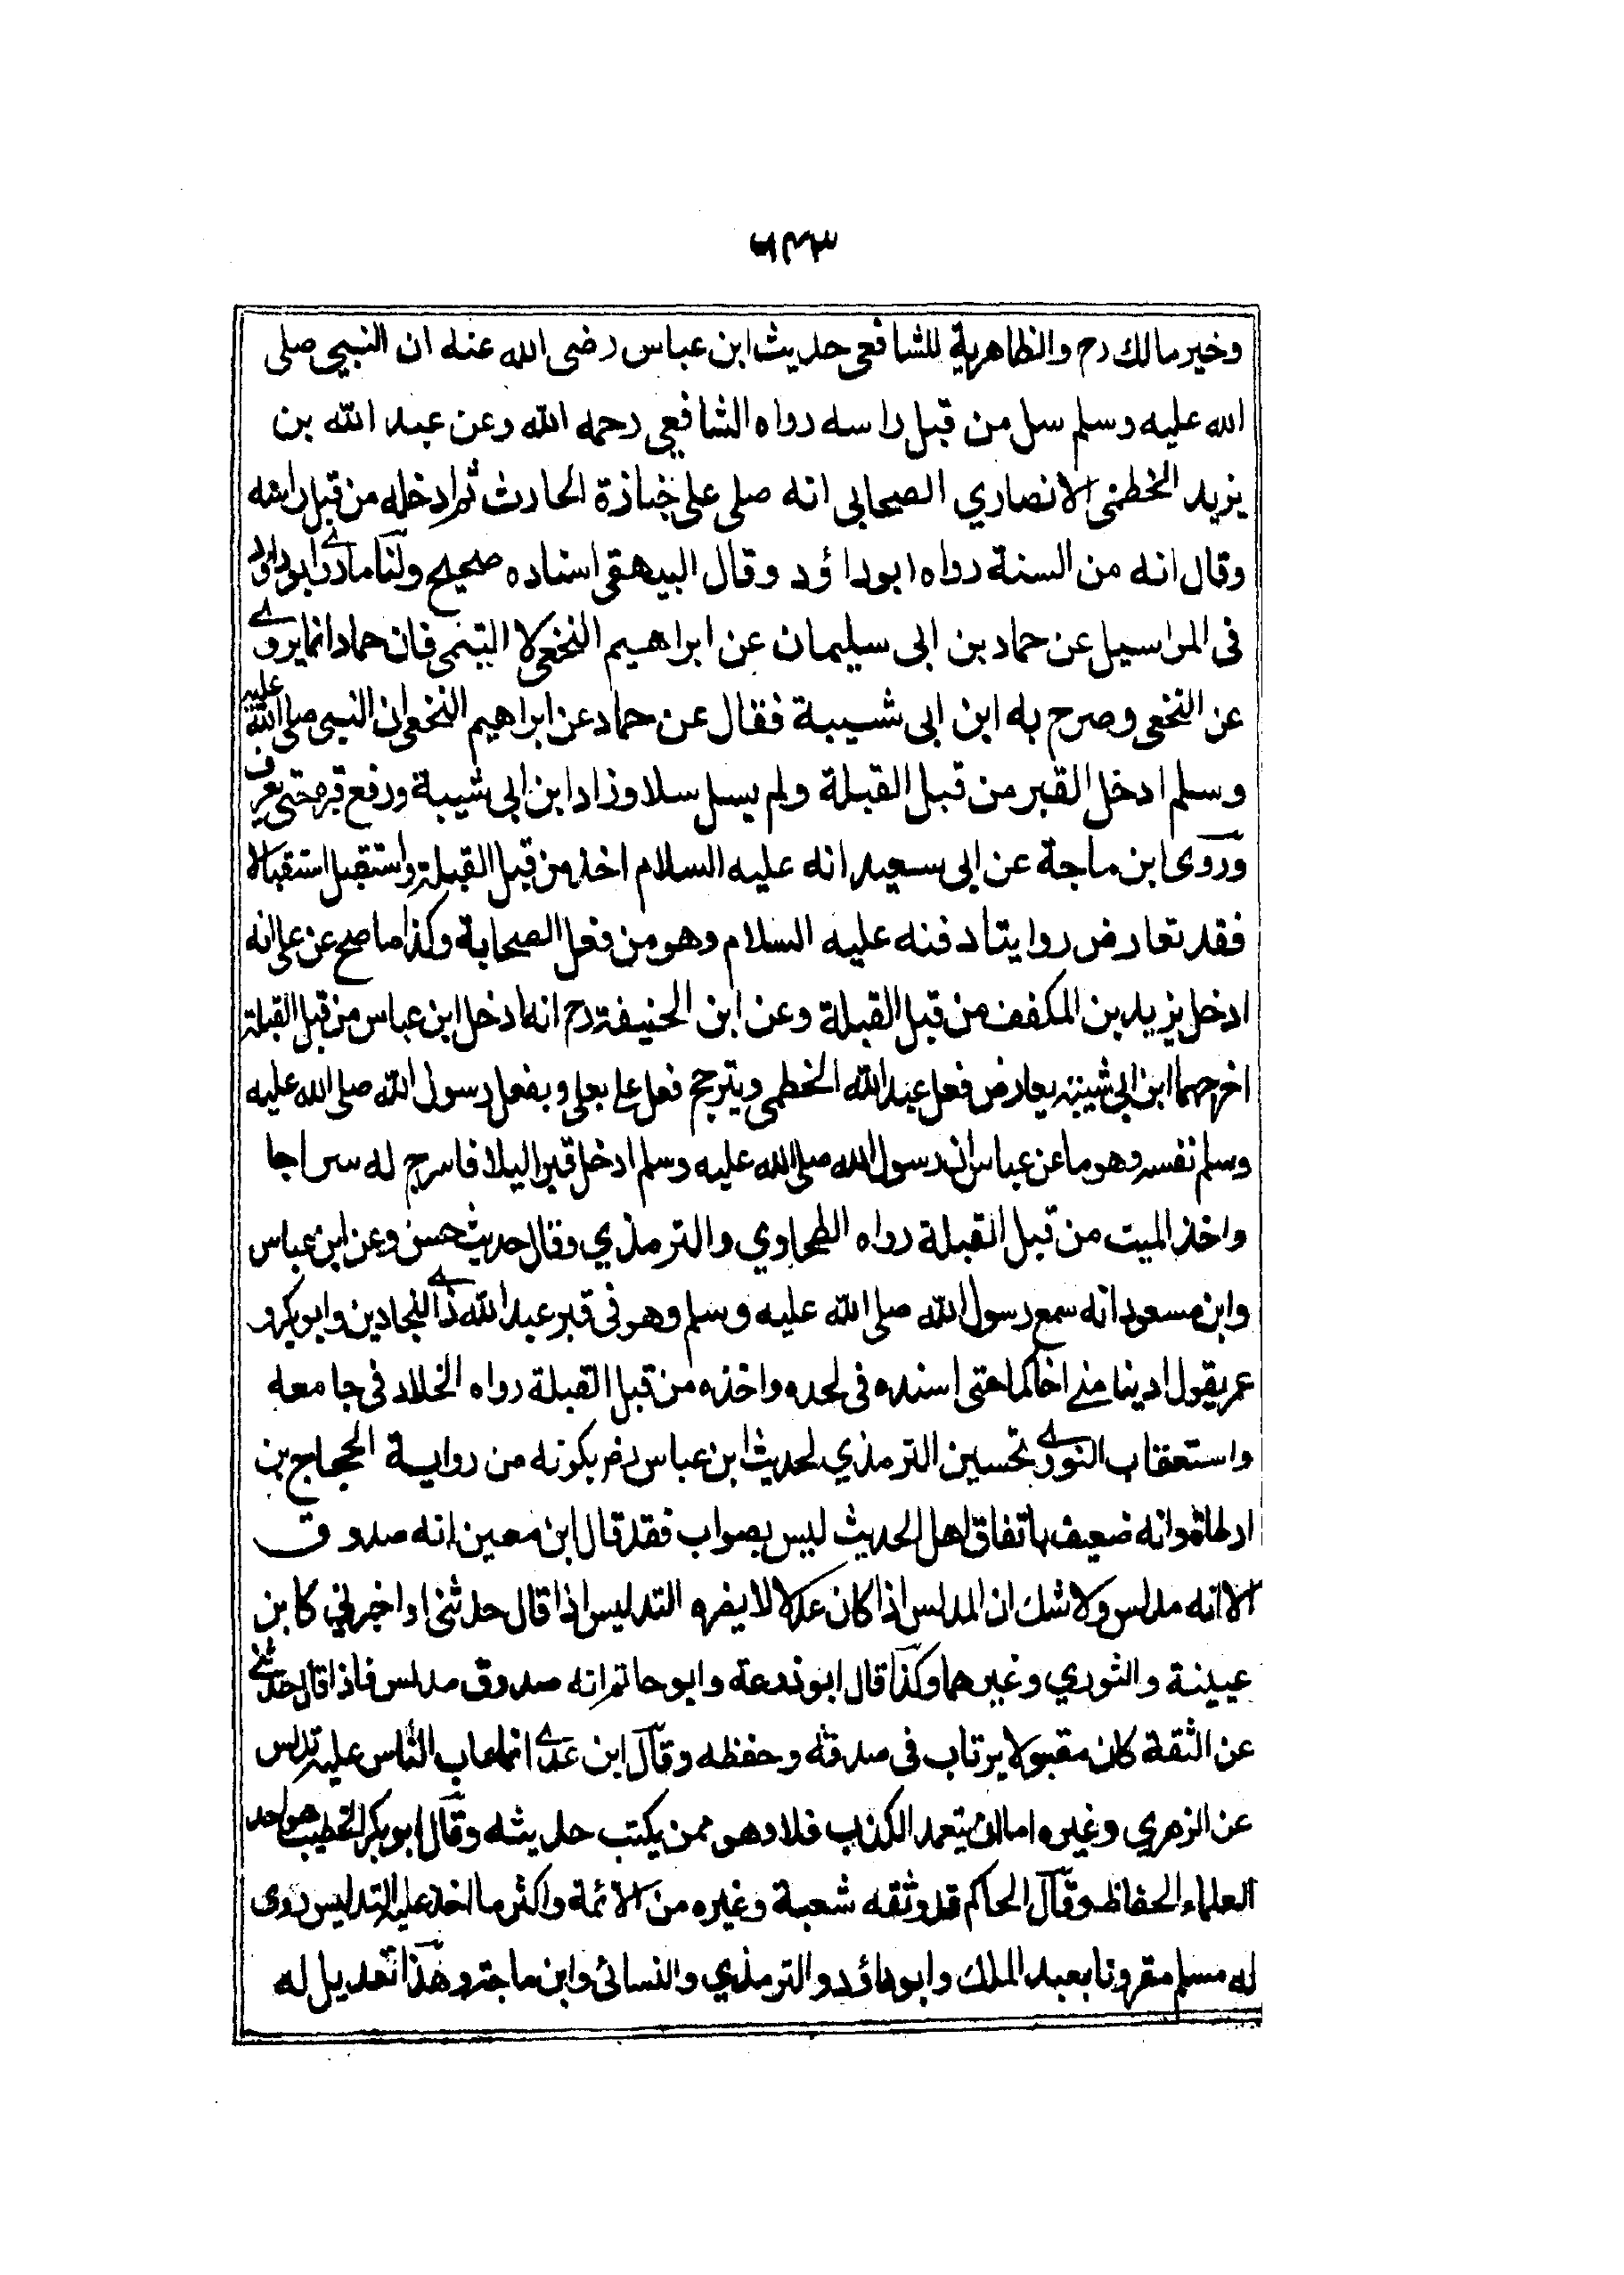 وخير مالك رح والظاهرية للشافعي حديث ابن عباس رضى الله عنه ان النبي صلى
الله عليه وسلم سل من قبل راسه رواه الشافعي رحمه الله وعن عبد الله بن
يزيد الخطمى الانصاري الصحابي انه صلى على خبازة الحارث ثم ادخله من قبل راسه
وقال انه من السنة رواه ابو داؤد وقال البيهقى اسناده صحيح ولنا ما روى ابو داؤد
فى المراسيل عن حماد بن ابى سليمان عن ابراهيم النخعى لا التيمى فان حمادا انما يروى
عن النخعى وصرح به ابن ابى شيبة فقال عن حماد عن ابراهيم النخعى ان النبى صلى الله عليه
وسلم ادخل القبر من قبل القبلة ولم يسل سلا وزاد ابن ابى شيبة ورفع قبره حتى يعرف
وروى ابن ماجة عن ابى سعيد انه عليه السلام اخذ من قبل القبلة واستقبل استقبالا
فقد تعارض روايتا دفنه عليه السلام وهو من فعل الصحابة وكذا ما صح عن على انه
ادخل يزيد بن المكفف من قبل القبلة وعن ابن الحنيفة رح انه ادخل ابن عباس من قبل القبلة
اخرجهما ابن ابى شيبة يعارض فعل عبد الله الخطمى ويترجح فعل على بعلى وبفعل رسول الله صلى الله عليه
وسلم نفسه وهو ما عن عباس ان رسول الله صلى الله عليه وسلم ادخل قبرا ليلا فاسرج له سراجا
واخذ الميت من قبل القبلة رواه الطحاوي والترمذي وقال حديث حسن وعن ابن عباس
وابن مسعود انه سمع رسول الله صلى الله عليه وسلم وهو فى قبر عبد الله ذى النجادين وابو بكر و
عمر يقول ادنيا منى اخاكما حتى اسنده فى لحده واخذه من قبل القبلة رواه الخلاد فى جامعه
واستعقاب النووى تحسين الترمذي لحديث ابن عباس رض بكونه من رواية الحجاج بن
ارطاة وانه ضعيف باتفاق اهل الحديث ليس بصواب فقد قال ابن معين انه صدوق
الا انه مدلس ولا شك ان المدلس اذا كان عدلا لا يضره التدليس اذا قال حدثنى او اخبرنى كابن
عيينة والثوري وغيرهما وكذا قال ابو زرعة وابو حاتم انه صدوق مدلس فاذا قال حدثنى
عن الثقة كان مقبولا يرتاب فى صدقه وحفظه وقال ابن عدى انما عاب الناس عليه تدلس
عن الزهري وغيره اما ان يتعمد الكذب فلا وهو ممن يكتب حديثه وقال ابو بكر الخطيب هو احد
العلماء الحفاظ وقال الحاكم قد وثقه شعبة وغيره من الائمة واكثر ما اخذ عليه التدليس روى
له مسلم مقرونا بعبد الملك وابو داؤد والترمذي والنسائى وابن ماجة وهذا تعديل له